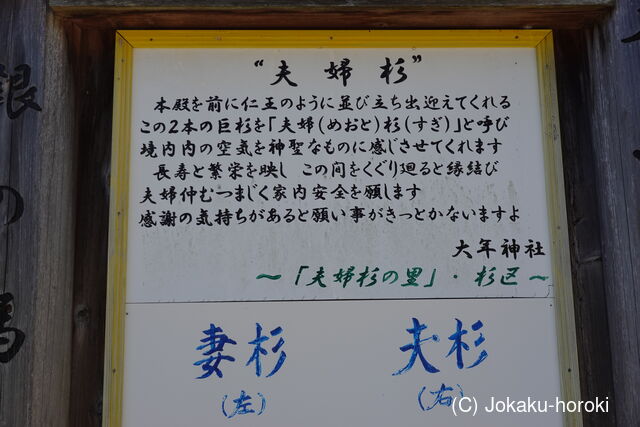 “夫婦杉”
本殿を前に仁王のように並び立ち出迎えてくれる
この2本の巨杉を「夫婦(めおと)杉(すぎ)」と呼び
境内内の空気を神聖なものに感じさせてくれます
長寿と繁栄を映し この間をくぐり廻ると縁結び
夫婦仲むつまじく家内安全を願します
感謝の気持ちがあると願い事がきっとかないますよ
大年神社
～「夫婦杉の里」・杉区～
妻杉
(左)
夫杉
(右)
銀の馬
(C) Jokaku-horoki